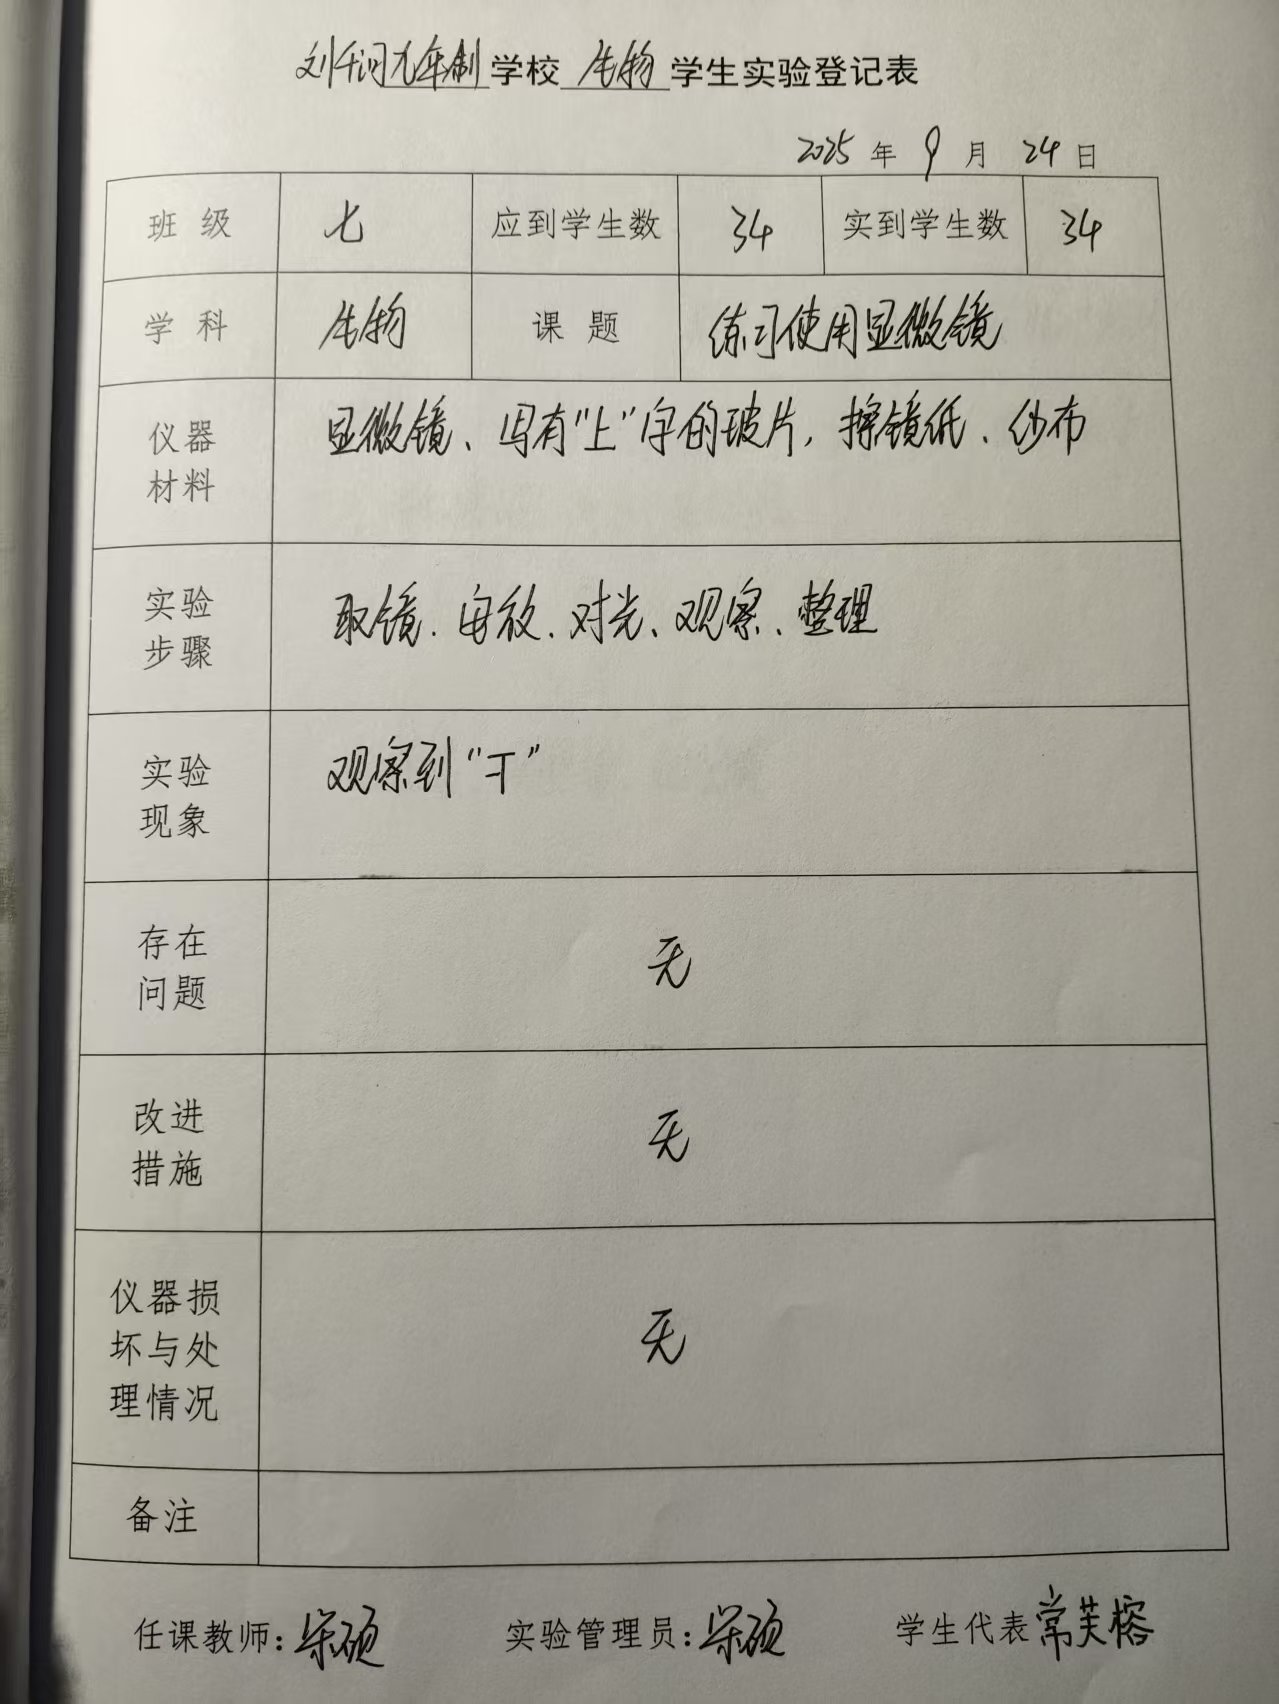 刘千河九年制学校 生物 学生实验登记表
2025 年 9 月 24 日
班 级 七 应到学生数 34 实到学生数 34
学 科 生物 课 题 练习使用显微镜
仪器
材料
显微镜、写有"上"字的玻片,擦镜纸、纱布
实验
步骤
取镜.安放、对光、观察、整理
实验
现象
观察到"干"
存在
问题
无
改进
措施
无
仪器损
坏与处
理情况
无
备注
任课教师: 宋硕 实验管理员: 宋硕 学生代表 常芙榕